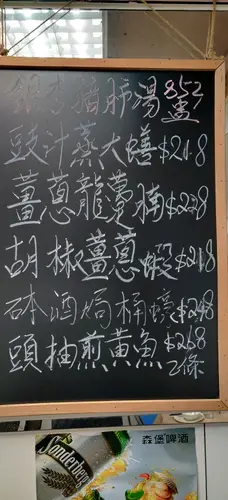 銀杏豬肺湯 $52 盅
豉汁蒸大蟮 $218
薑蔥龍躉腩 $238
胡椒薑蔥蝦 $218
砵酒焗桶蠔 $248
頭抽煎黃魚 $268 2條
Sonderberg
森堡啤酒